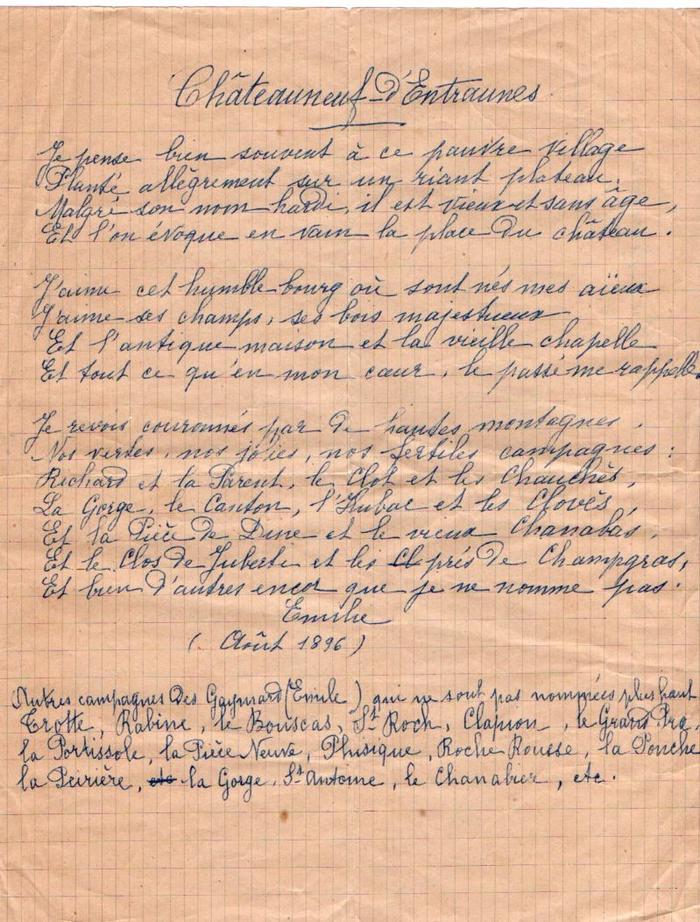 Châteauneuf-d'Entraunes
Je pense bien souvent à ce pauvre village
Planté allègrement sur un riant plateau.
Malgré son nom hardi, il est vieux et sans âge,
Et l'on évoque en vain la place du château.
J'aime cet humble bourg où sont nés mes aïeux
J'aime ses champs, ses bois majestueux
Et l'antique maison et la vieille chapelle
Et tout ce qu'en mon cœur, le passé me rappelle.
Je revois couronnés par de hautes montagnes.
Nos vertes, nos jolies, nos fertiles campagnes :
Richard et la Parent, le Clot et les Chauchès,
La Gorge, le Canton, l'Hubac et les Clovès,
Et la Pièce de Dine et le vieux Chanabas,
Et le Clos de Juberte et les prés de Champgras,
Et bien d'autres encor que je ne nomme pas.
Emilie
(Août 1896)
Autres campagnes des Gaymard (Emile) qui ne sont pas nommées plus haut
Trotte, Rabine, le Bouscas, St Roch, Clapion, le Grand Pra,
la Portissole, la Pièce Neuve, Phusique, Roche Rousse, la Ponche
la Peirière, etc la Gorge, St Antoine, le Chanabier, etc.